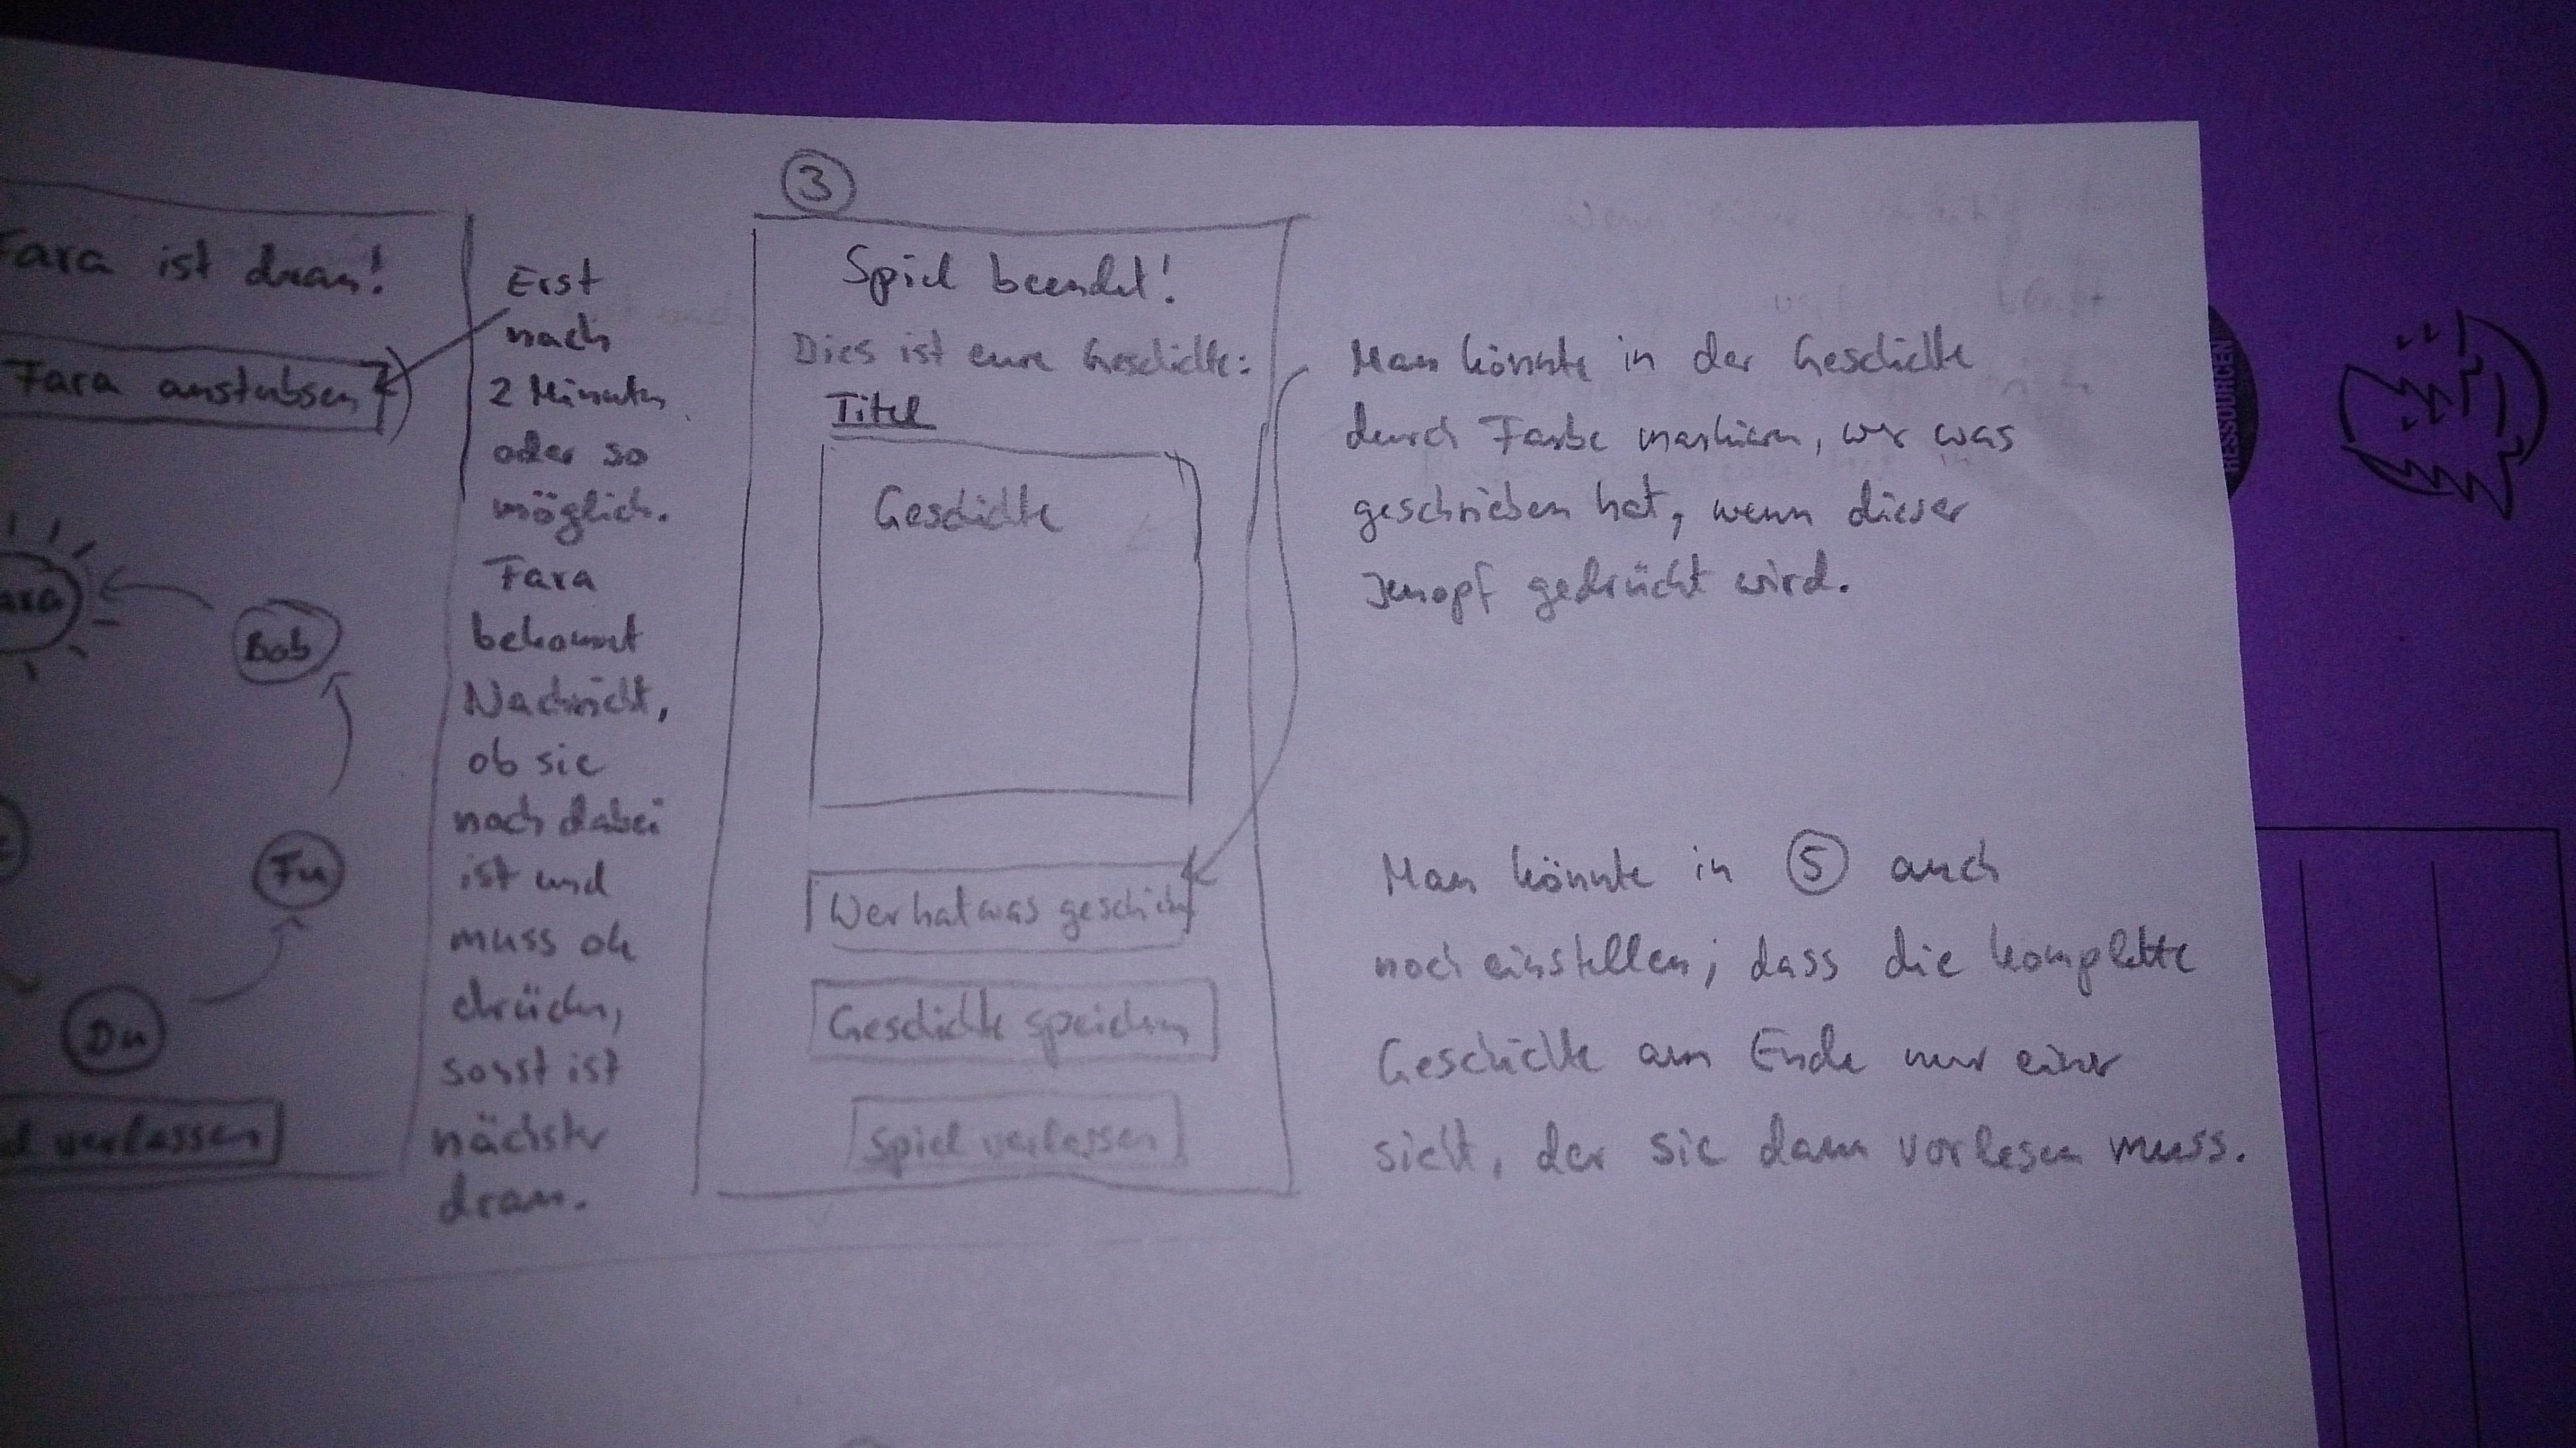 Fara ist dran!
Fara anstubsen
Bob
Fu
Du
verlassen
Erst
nach
2 Minuten
oder so
möglich.
Fara
bekommt
Nachricht,
ob sie
noch dabei
ist und
muss ok
drücken,
sonst ist
nächster
dran.
3
Spiel beendet!
Dies ist eure Geschichte:
Titel
Geschichte
Wer hat was geschr
Geschichte speichern
Spiel verlassen
Man könnte in der Geschichte
durch Farbe markieren, wer was
geschrieben hat, wenn dieser
Knopf gedrückt wird.
Man könnte in 5 auch
noch einstellen, dass die komplette
Geschichte am Ende nur einer
sieht, der sie dann vorlesen muss.
RESSOURCEN